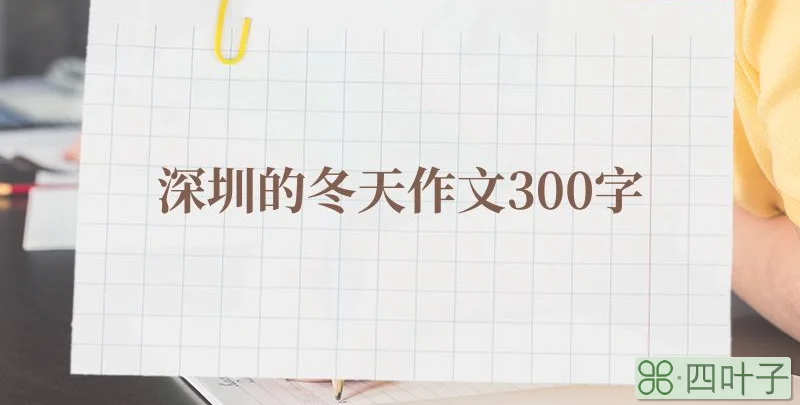 深圳的冬天作文300字
四叶子